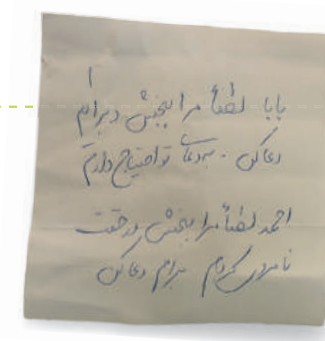 بابا لطفاً مرا ببخش و برام
دعا کن. به دعای تو احتیاج دارم
احمد لطفاً مرا ببخش در حقت
نامردی کردم برام دعا کن